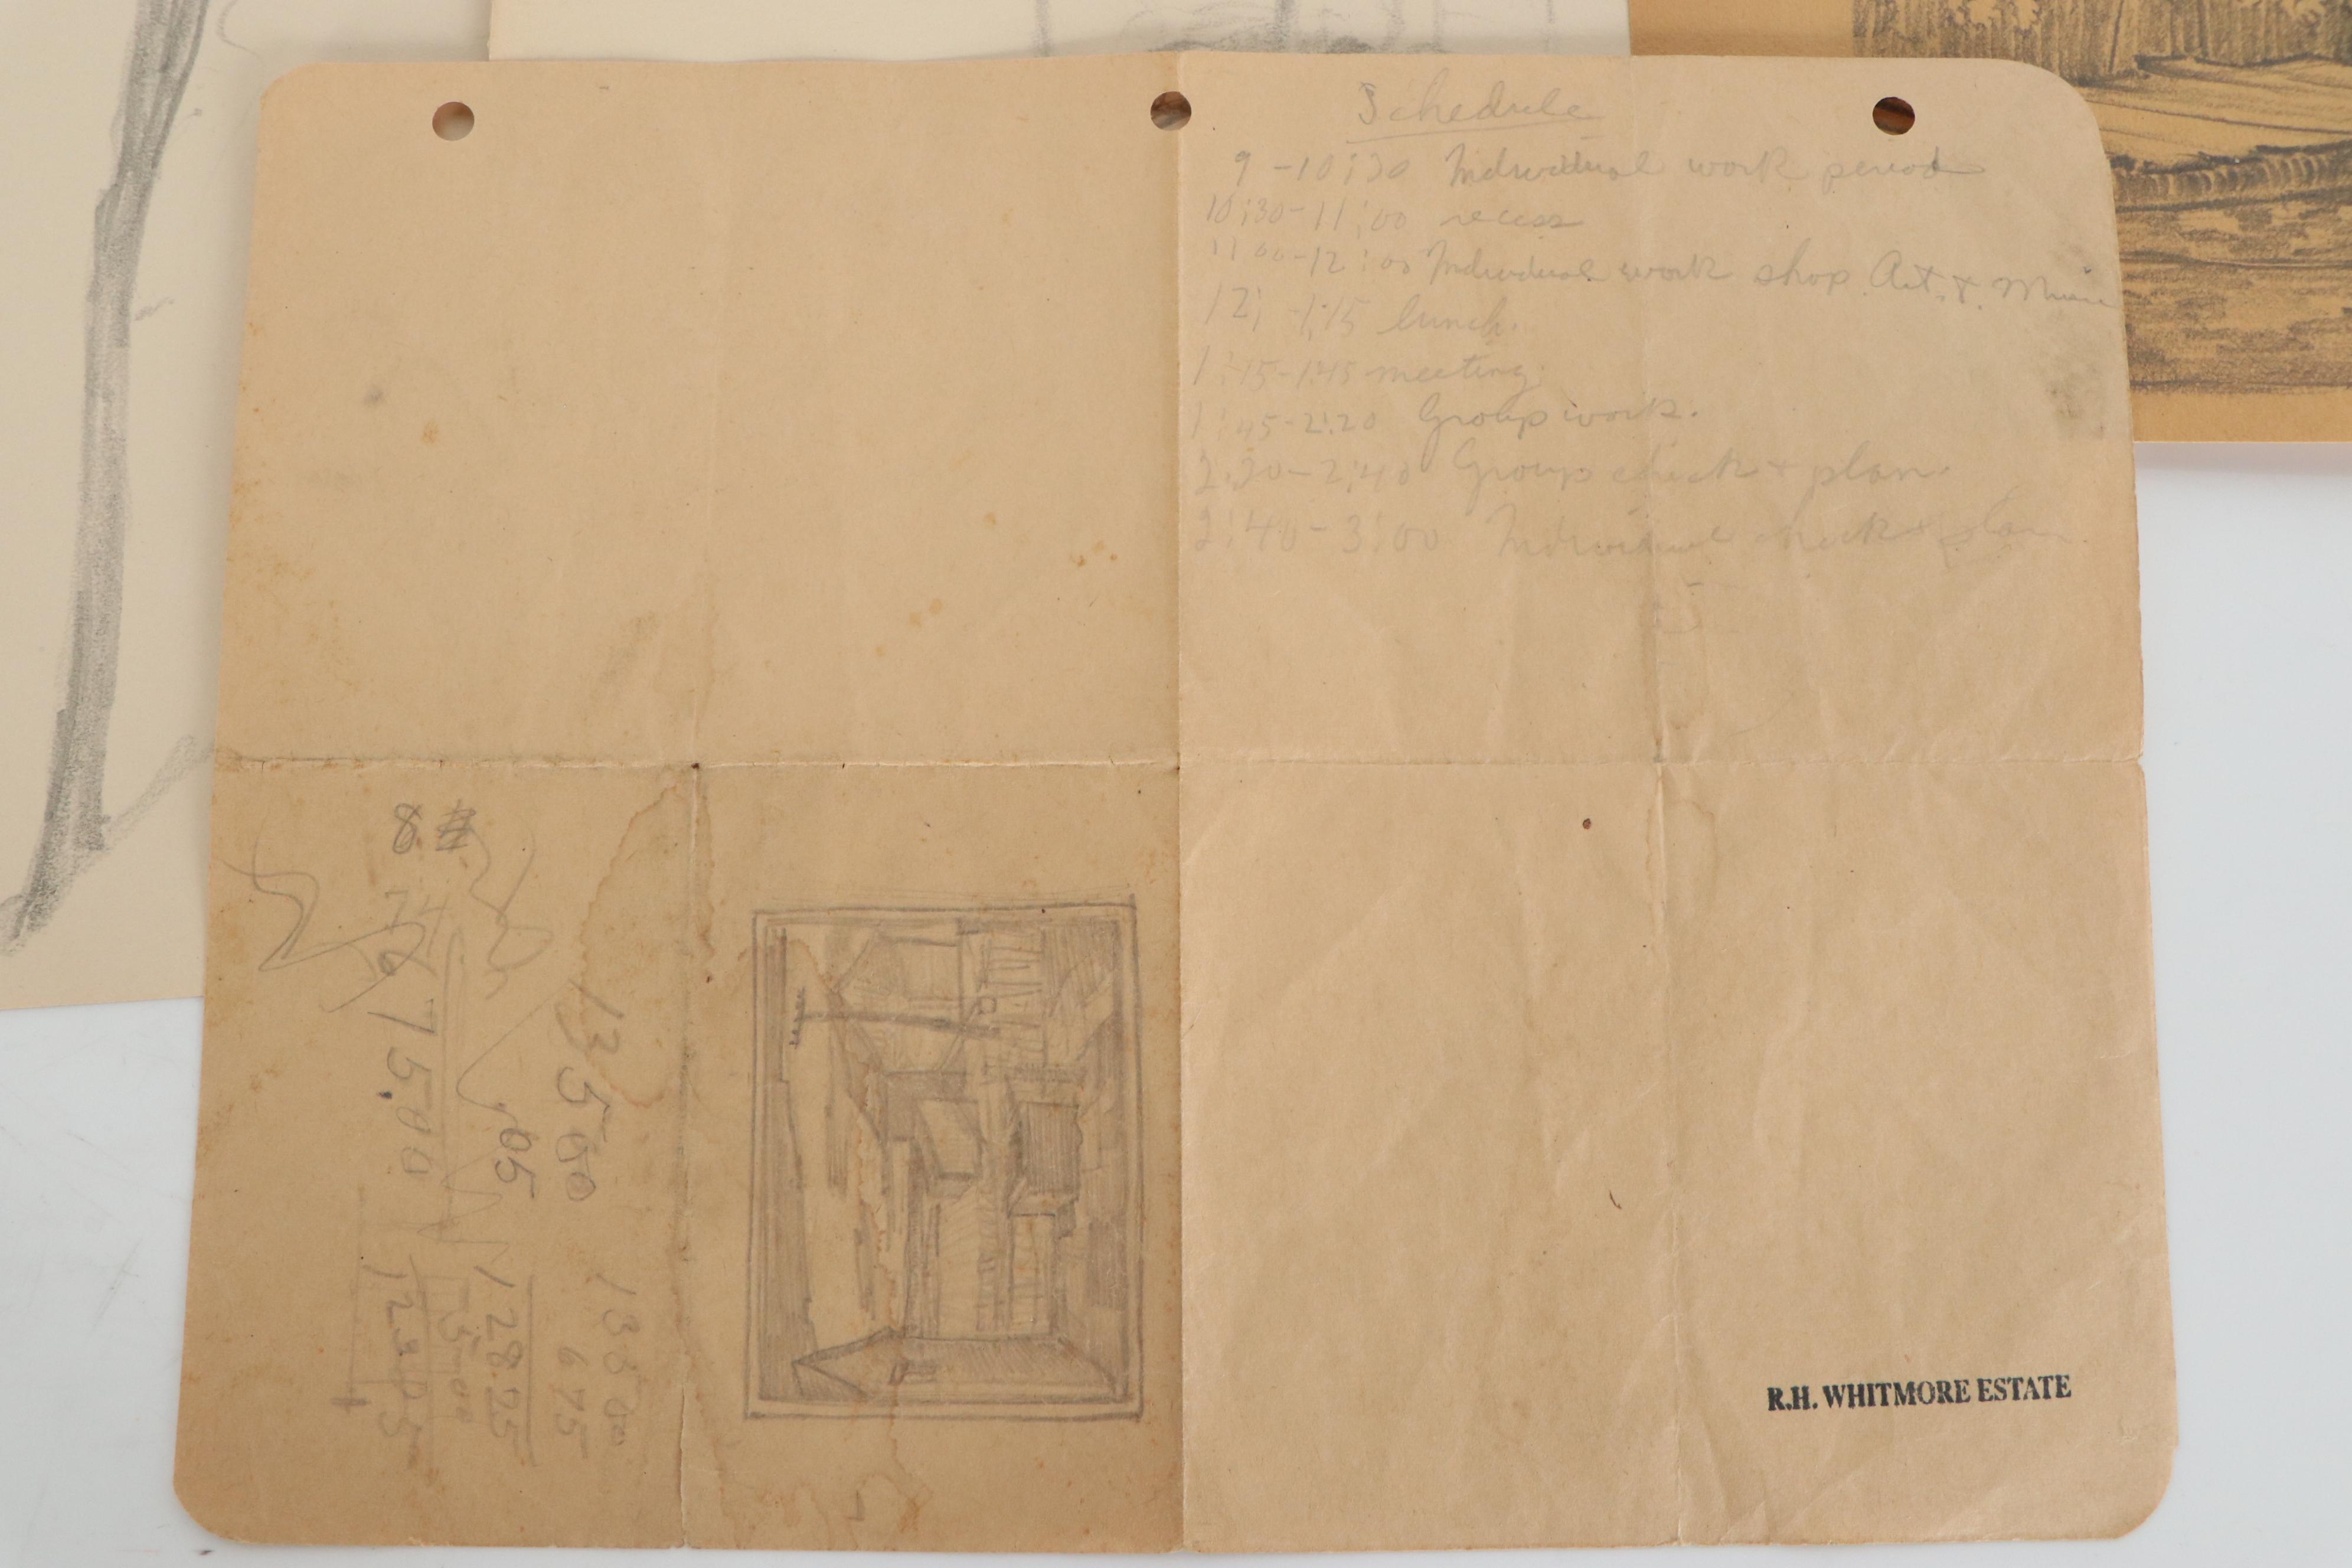 Schedule
9 - 10:30 Individual work period
10:30 - 11:00 recess
11 00 - 12:00 Individual work shop. Art. & Music
12: - 1:15 lunch.
1:15 - 1:45 meeting.
1:45 - 2:20 Group work.
2:20 - 2:40 Group check & plan.
2:40 - 3:00 Individual check & plan.
8
.05
13500
675
128.25
R.H. WHITMORE ESTATE